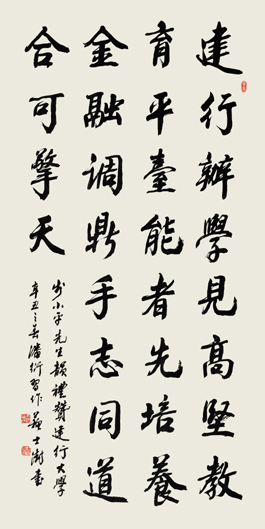 建行辦學見高堅教
育平臺能者先培養
金融调鼎手志同道
合可擎天
步小平先生韻禮贊建行大學
辛丑之春潘衍習作蘇士澍書